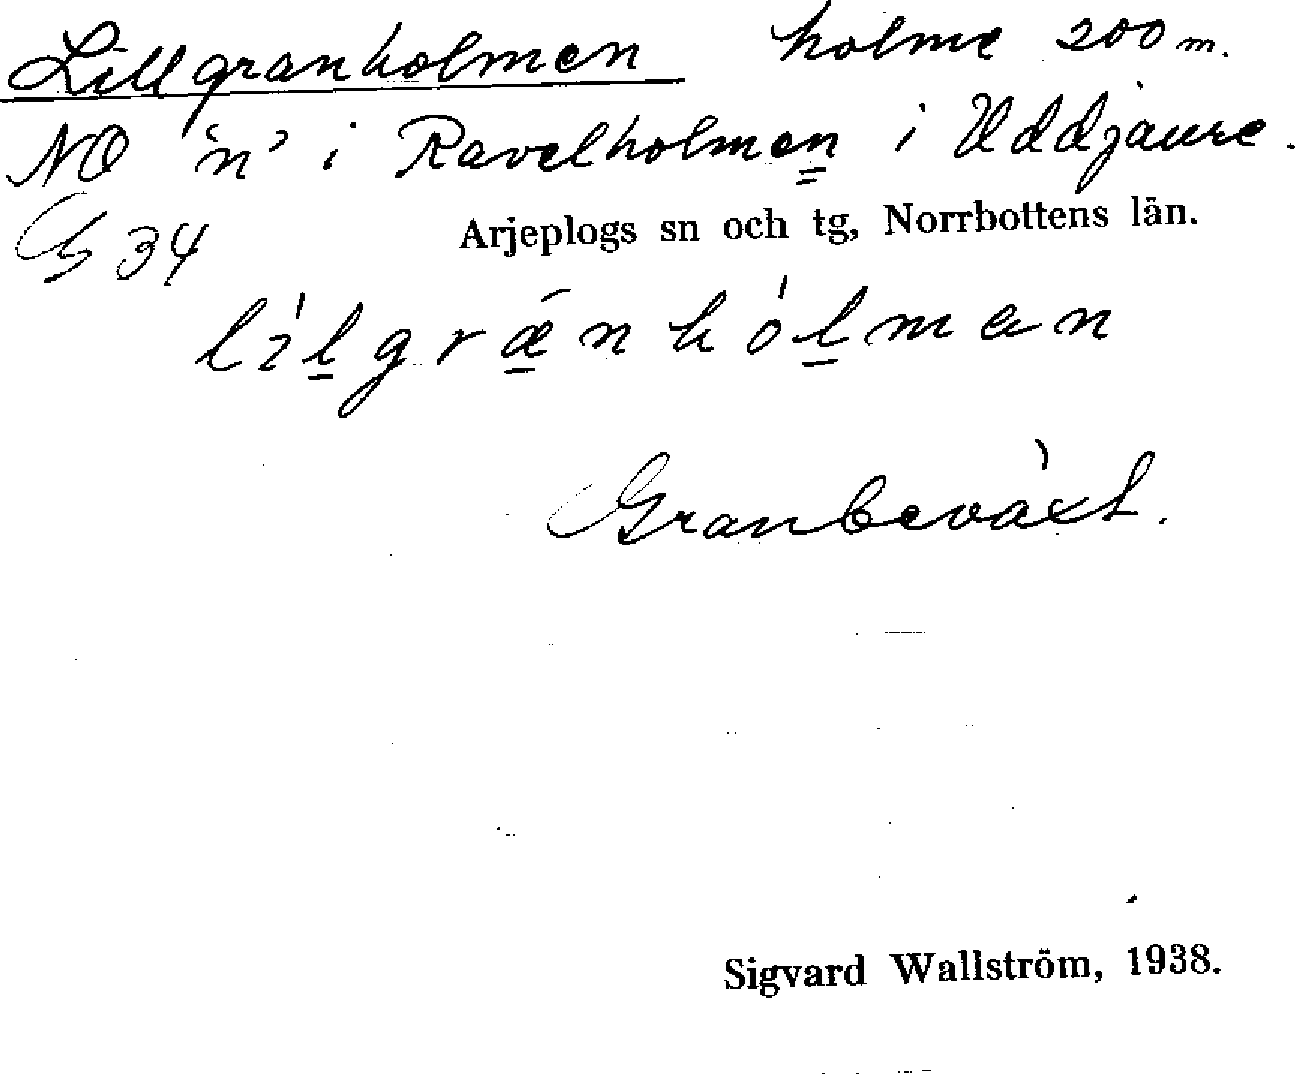 Lillgranholmen holme 200 m.
NO "n" i Ravelholmen i Uddjaure.
G 34 Arjeplogs sn och tg, Norrbottens län.
lìlgrǽnhólman
Granbeväxt.
Sigvard Wallström, 1938.